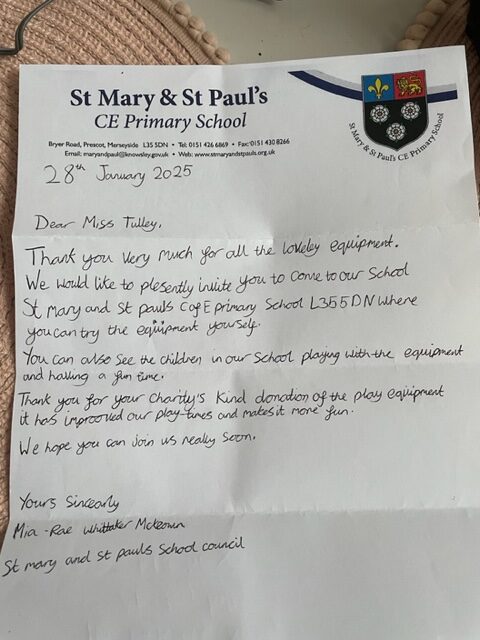 St Mary & St Paul's
CE Primary School
Bryer Road, Prescot, Merseyside L35 5DN • Tel: 0151 426 6869 • Fax: 0151 430 8266
Email: maryandpaul@knowsley.gov.uk • Web: www.stmaryandstpauls.org.uk
St Mary & St Paul's CE Primary School
28th January 2025
Dear Miss Tulley,
Thank you very much for all the loveley equipment.
We would like to plesently invite you to come to our School
St mary and St pauls C of E primary School L355DN where
you can try the equipment yourself.
You can also see the children in our School playing with the equipment
and haiing a fun time.
Thank you for your Charity's Kind donation of the play equipment
it has improoved our play-times and makes it more fun.
We hope you can join us really Soon.
Yours Sincearly
Mia-Rae Whittaker Mckeown
St mary and st pauls School council